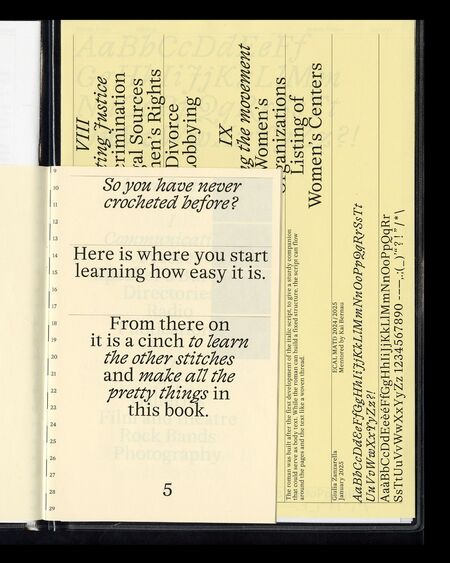 So you have never
crocheted before?
Here is where you start
learning how easy it is.
From there on
it is a cinch to learn
the other stitches
and make all the
pretty things in
this book.
5
Film and Theatre
Rock Bands
Photography
Directories
Radio
9
10
11
12
13
14
15
16
17
18
19
20
21
22
23
24
25
26
27
28
29
VIII
ting Justice
rimination
al Sources
men's Rights
Divorce
obbying
IX
g the movement
Women's
rganizations
Listing of
Women's Centers
The roman was built after the first development of the italic script, to give a sturdy companion
that could serve as body text. While the roman can build a fixed structure, the script can flow
around the pages and the text like a woven thread.
Giulia Zanzarella
January 2025
ECAL MATD 2024/2025
Mentored by Kai Bernau
AaBbCcDdEeFfGgHhIiJjKkLlMmNnOoPpQqRrSsTt
UuVvWwXxYyZz?!
AaàBbCcDdEeéèFfGgHhIiJjKkLlMmNnOoPpQqRr
SsTtUuVvWwXxYyZz 1234567890
AaBbCcDdEeFf